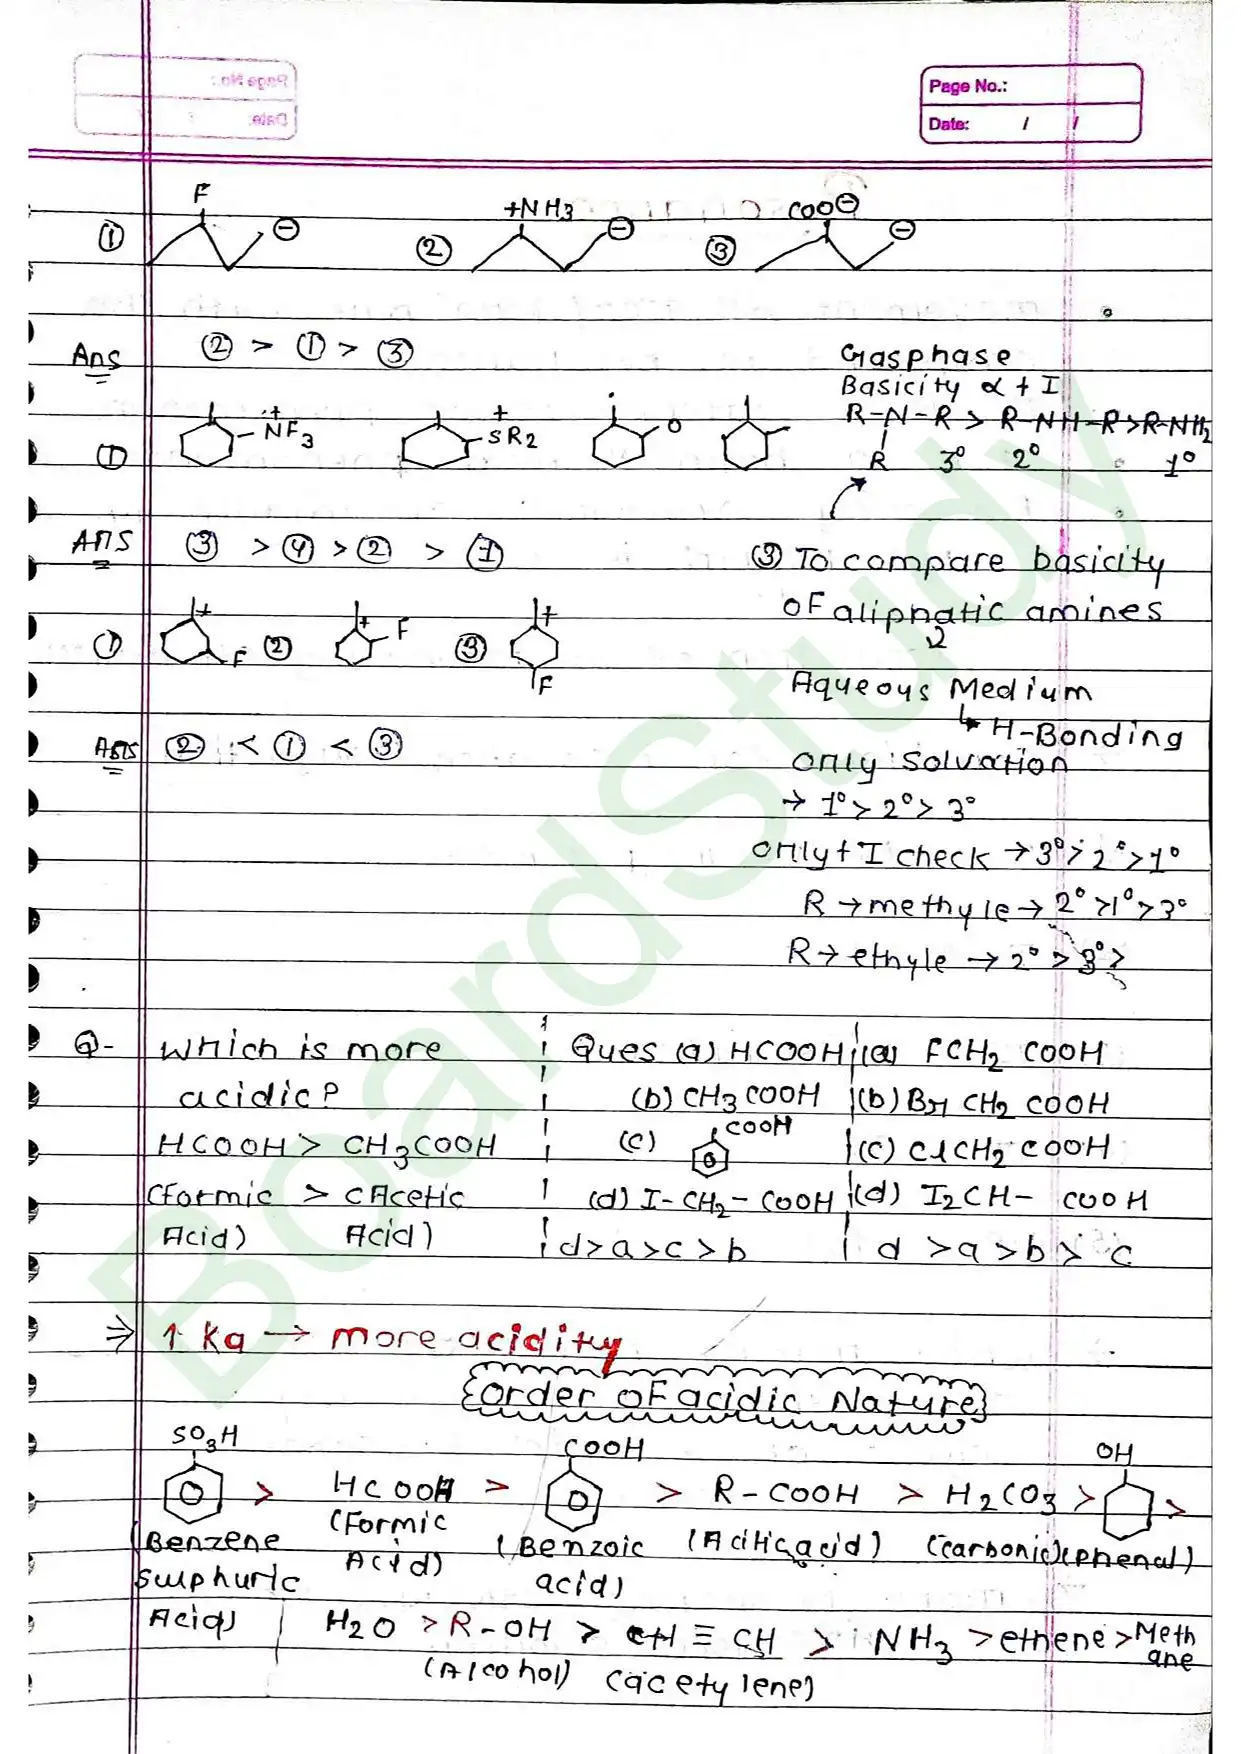 Page No.:
Date: / /
Page No.:
Date: / /
F
① ⊖
+NH3
② ⊖
COO⊖
③ ⊖
Ans ② > ① > ③
Gasphase
Basicity α + I
R-N-R > R-NH-R > R-NH2
R 3° 2° 1°
① + NF3
+ SR2
O
Ans ③ > ④ > ② > ①
③ To compare basicity
of aliphatic amines
Aqueous Medium
↳ H-Bonding
only solvation
→ 1° > 2° > 3°
only + I check → 3° > 2° > 1°
R → methyle → 2° > 1° > 3°
R → ethyle → 2° > 3° >
① + F ② + F ③ + F
Ans ② < ① < ③
Q- Which is more
acidic?
HCOOH > CH3COOH
(Formic > (Acetic
Acid) Acid)
Ques (a) HCOOH
(b) CH3COOH
(c) COOH
(d) I-CH2-COOH
d > a > c > b
(a) FCH2 COOH
(b) Br CH2 COOH
(c) ClCH2 COOH
(d) I2CH- COOH
d > a > b > c
⇒ ↑ Ka → more acidity
Order of acidic Nature
SO3H > HCOOH > COOH > R-COOH > H2CO3 > OH >
(Benzene sulphuric Acid)
(Formic Acid)
(Benzoic acid)
(Carbonic)
(phenal)
H2O > R-OH > CH ≡ CH > NH3 > ethene > Methane
(Alcohol) (acetylene)
BoardStudy